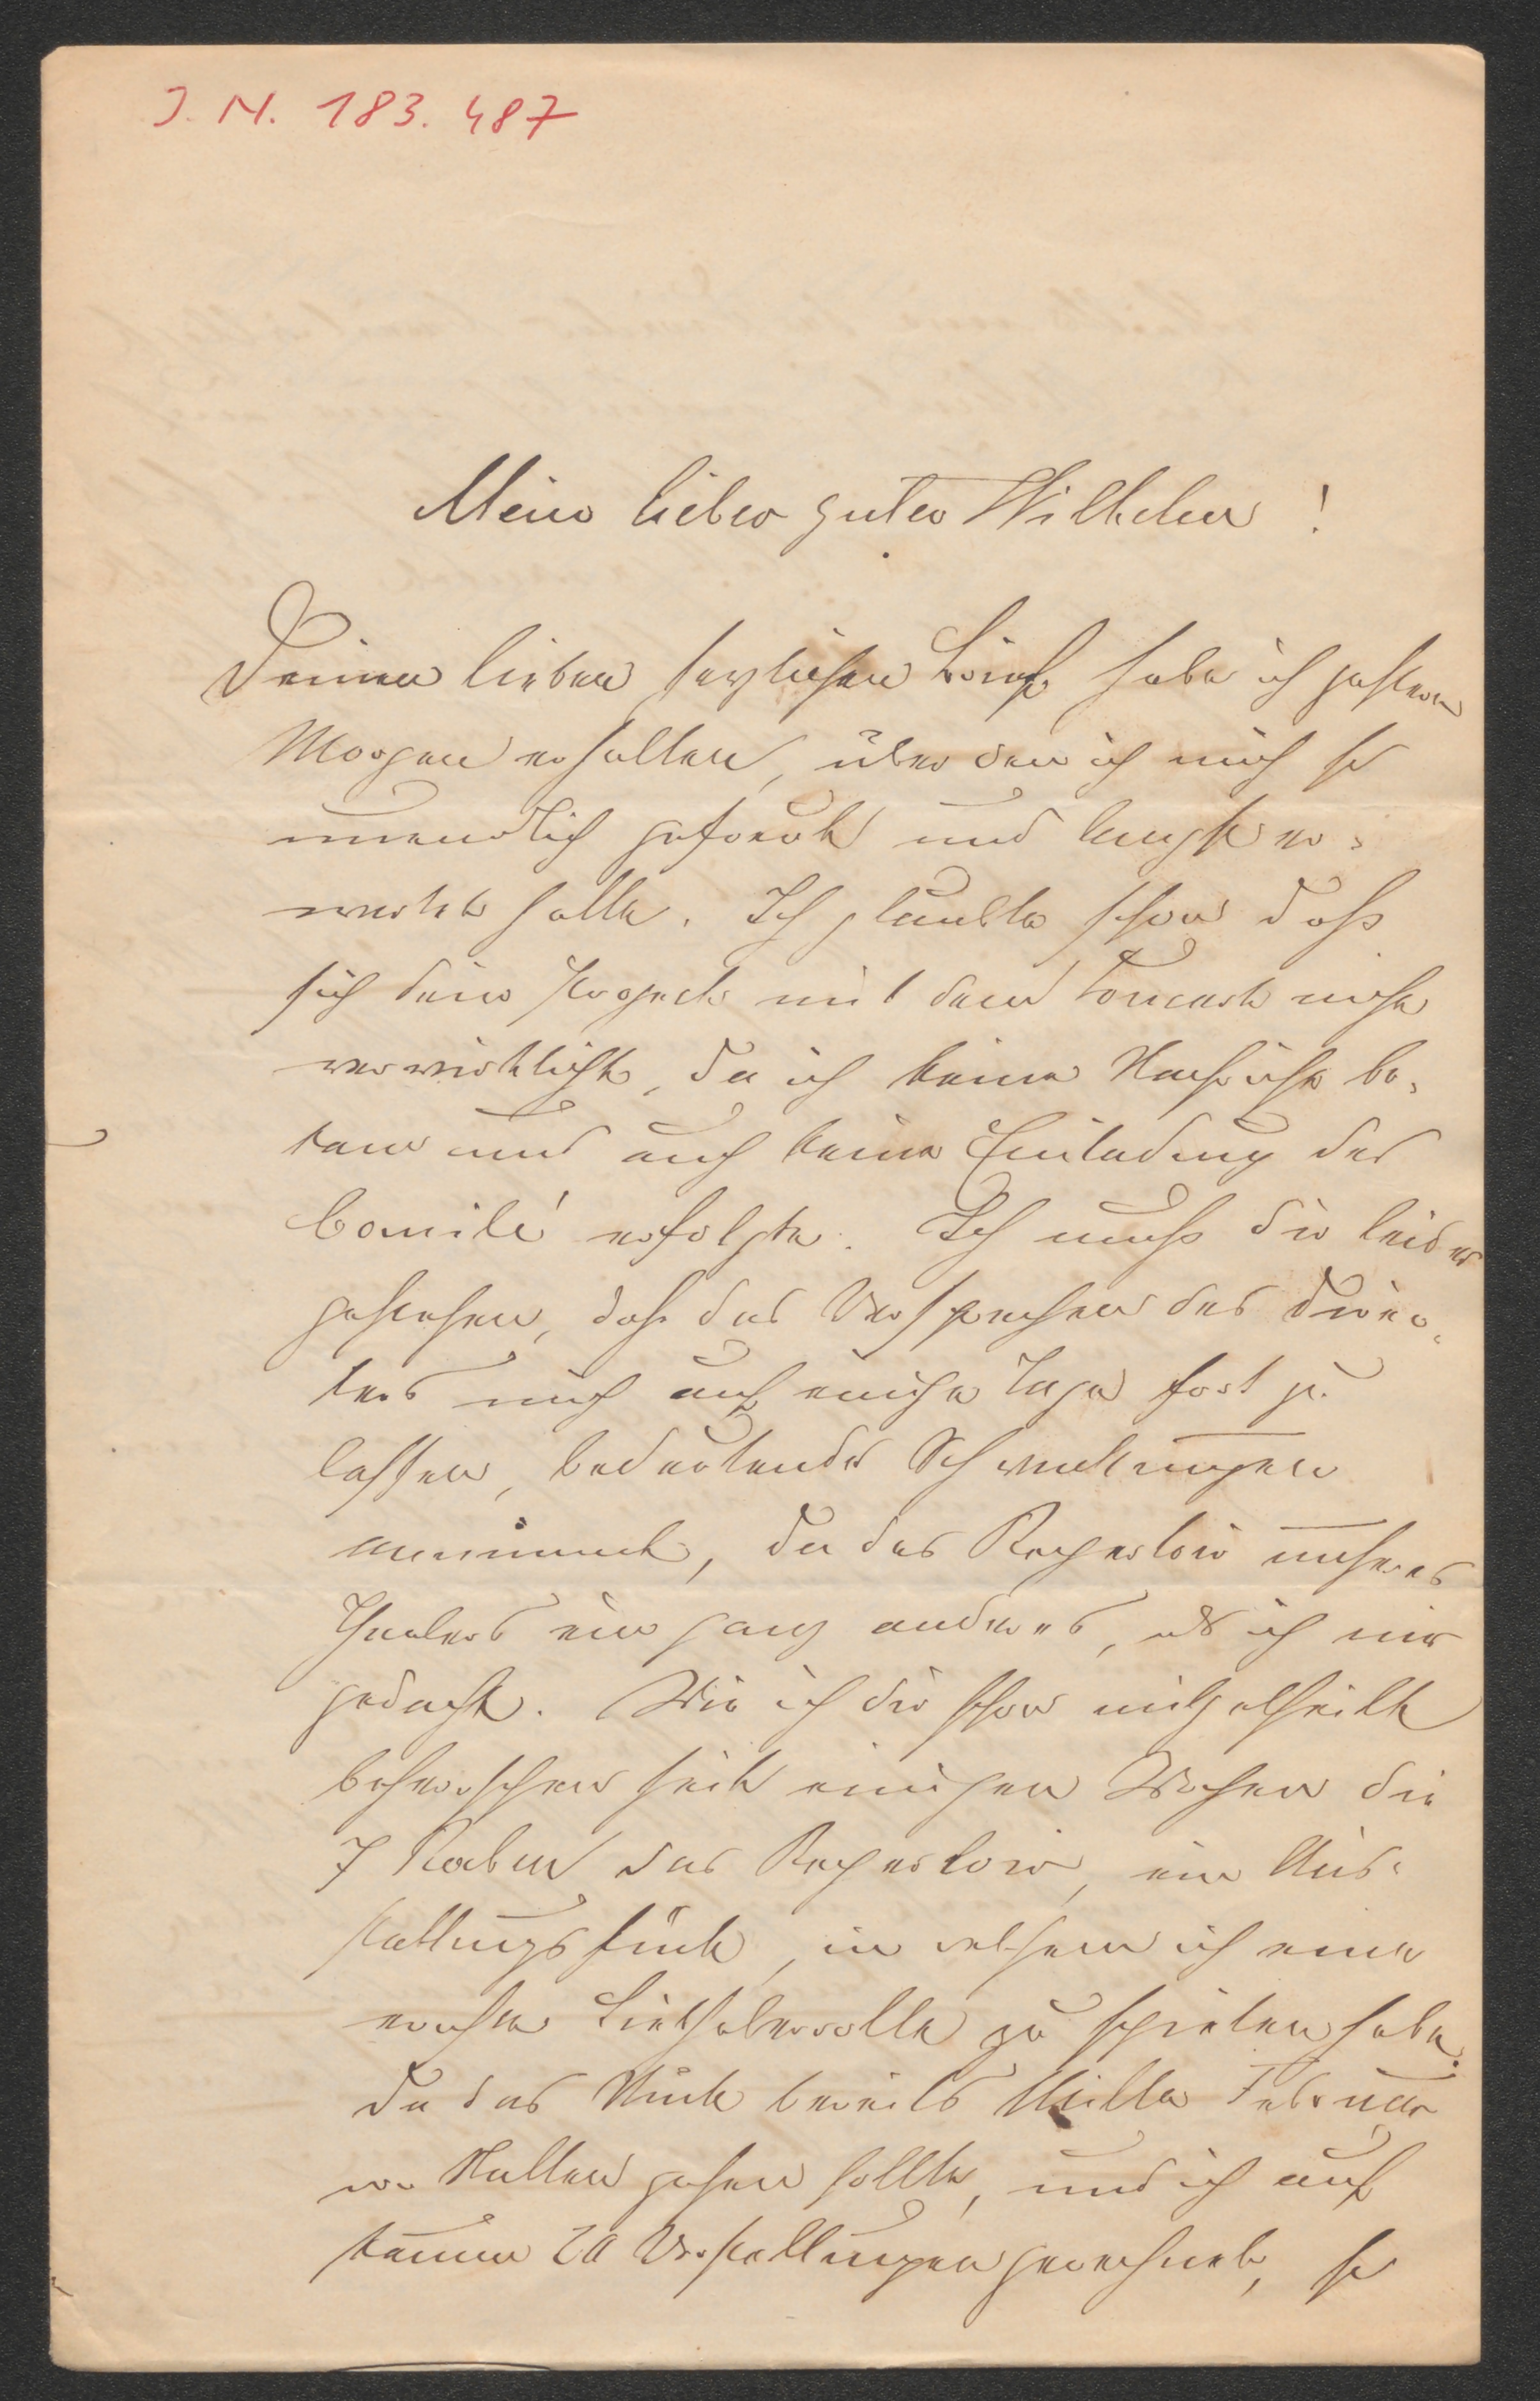 J. N. 183.487
Mein lieber guter Wilhelm!
Deinen lieben herzlichen Brief habe ich gestern
Morgen erhalten, über den ich mich so
unendlich gefreut und längst er-
wartet hatte. Ich glaubte schon daß
sich dein Project mit dem Concert nicht
verwirklicht, da ich keine Nachricht be-
kam und auch keine Einladung des
Comité erfolgte. Ich muß dir leider
gestehen, daß das Versprechen des Direc-
tors mich auf einige Tage fort zu
lassen, bedeutende Schwankungen
annimmt, da das Repertoir unseres
Theaters ein ganz anderes, als ich mir
gedacht. Wie ich dir schon mitgetheilt
beherrschen seit einigen Wochen die
7 Raben das Repertoir, ein Aus-
stattungsstück, in welchem ich eine
erste Liebhaberrolle zu spielen habe.
Da das Stück bereits Mitte Februar
von Statten gehen sollte, und ich auf
kaum 20 Vorstellungen gerechnet, so